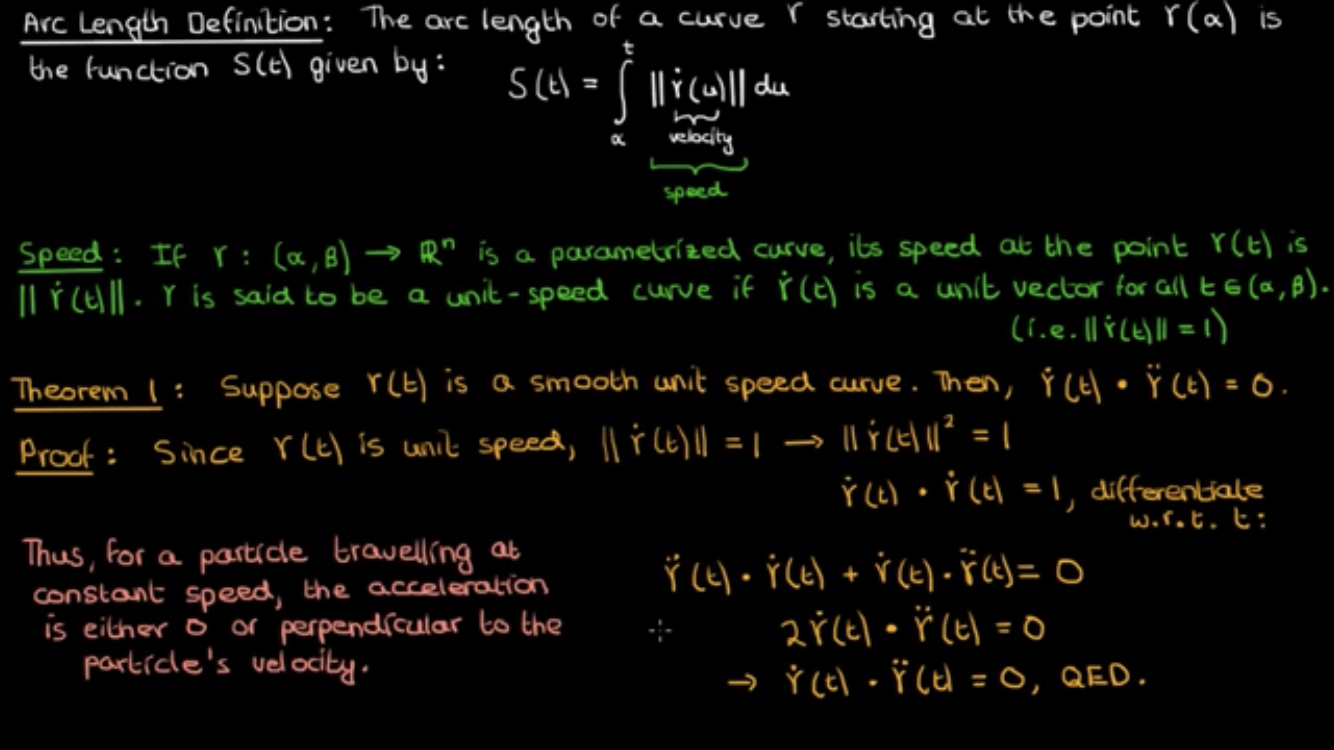 Arc Length Definition: The arc length of a curve γ starting at the point γ(α) is
the function S(t) given by:
S(t) = ∫_α^t ||γ̇(u)|| du
velocity
speed
Speed: If γ : (α, β) → ℝⁿ is a parametrized curve, its speed at the point γ(t) is
||γ̇(t)||. γ is said to be a unit-speed curve if γ̇(t) is a unit vector for all t ∈ (α, β).
(i.e. ||γ̇(t)|| = 1)
Theorem 1: Suppose γ(t) is a smooth unit speed curve. Then, γ̇(t) • γ̈(t) = 0.
Proof: Since γ(t) is unit speed, ||γ̇(t)|| = 1 → ||γ̇(t)||² = 1
γ̇(t) • γ̇(t) = 1, differentiate
w.r.t. t:
γ̈(t) • γ̇(t) + γ̇(t) • γ̈(t) = 0
2γ̇(t) • γ̈(t) = 0
→ γ̇(t) • γ̈(t) = 0, QED.
Thus, for a particle travelling at
constant speed, the acceleration
is either 0 or perpendicular to the
particle's velocity.